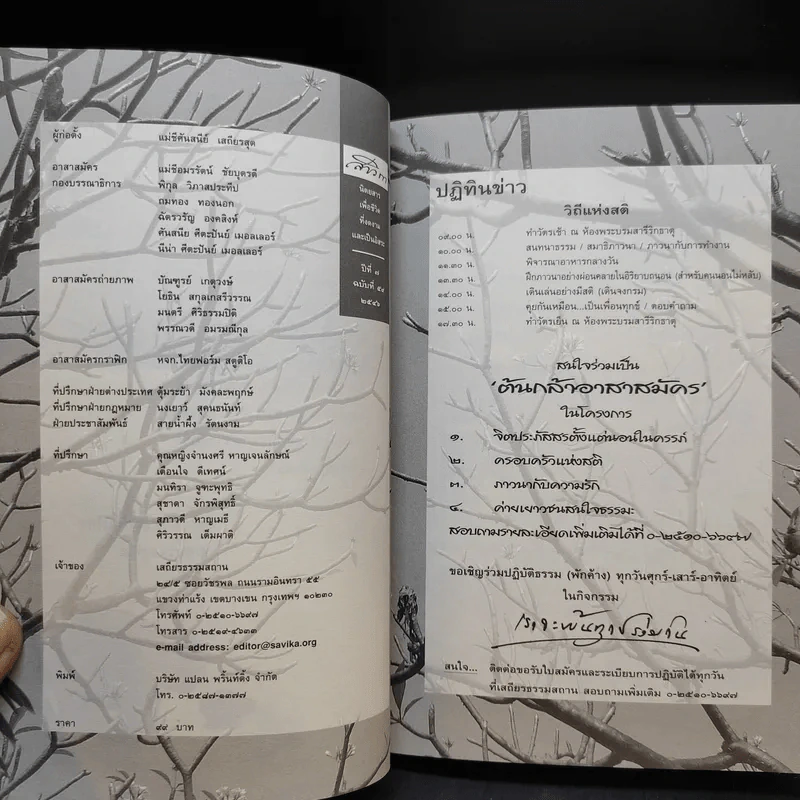 ผู้ก่อตั้ง แม่ชีศันสนีย์ เสถียรสุต
อาสาสมัคร แม่ชีอมรรัตน์ ชัยบุตรดี
กองบรรณาธิการ พิกุล วิภาสประทีป
ถมทอง ทองนอก
ฉัตรวรัญ องคสิงห์
ศันสนีย ศีตะปันย์ เมอลเลอร์
นีน่า ศีตะปันย์ เมอลเลอร์
อาสาสมัครถ่ายภาพ บัณฑูรย์ เกตุวงษ์
โยธิน สกุลเกสรีวรรณ
มนตรี ศิริธรรมปิติ
พรรณวดี อมรมณีกุล
อาสาสมัครกราฟิก หจก.ไทยฟอร์ม สตูดิโอ
ที่ปรึกษาฝ่ายต่างประเทศ ตุ้มระย้า มังคละพฤกษ์
ที่ปรึกษาฝ่ายกฎหมาย นงเยาว์ สุคนธนันท์
ฝ่ายประชาสัมพันธ์ สายน้ำผึ้ง รัตนงาม
ที่ปรึกษา คุณหญิงจำนงศรี หาญเจนลักษณ์
เตือนใจ ดีเทศน์
มนทิรา จูฑะพุทธิ
สุชาดา จักรพิสุทธิ์
สุภาวดี หาญเมธี
ศิริวรรณ เต็มผาติ
เจ้าของ เสถียรธรรมสถาน
๒๔/๕ ซอยวัชรพล ถนนรามอินทรา ๕๕
แขวงท่าแร้ง เขตบางเขน กรุงเทพฯ ๑๐๒๓๐
โทรศัพท์ ๐-๒๕๑๐-๖๖๙๗
โทรสาร ๐-๒๕๑๙-๔๖๓๓
e-mail address: editor@savika.org
พิมพ์ บริษัท แปลน พริ้นท์ติ้ง จำกัด
โทร. ๐-๒๕๔๗-๑๓๗๗
ราคา ๙๙ บาท
นิตยสาร
เพื่อชีวิต
ที่งดงาม
และเป็นอิสระ
ปีที่ ๗
๒๕๔๖
ปฏิทินข่าว
วิถีแห่งสติ
๐๙.๐๐ น. ทำวัตรเช้า ณ ห้องพระบรมสารีริกธาตุ
๑๐.๐๐ น. สนทนาธรรม / สมาธิภาวนา / ภาวนากับการทำงาน
๑๑.๓๐ น. พิจารณาอาหารกลางวัน
๑๓.๓๐ น. ฝึกภาวนาอย่างผ่อนคลายในอิริยาบถนอน (สำหรับคนนอนไม่หลับ)
๑๔.๐๐ น. เดินเล่นอย่างมีสติ (เดินจงกรม)
๑๕.๐๐ น. คุยกันเหมือน...เป็นเพื่อนทุกข์ / ตอบคำถาม
๑๗.๓๐ น. ทำวัตรเย็น ณ ห้องพระบรมสารีริกธาตุ
สนใจร่วมเป็น
'ต้นกล้าอาสาสมัคร'
ในโครงการ
๑. จิตประภัสสรตั้งแต่นอนในครรภ์
๒. ครอบครัวแห่งสติ
๓. ภาวนากับความรัก
๔. ค่ายเยาวชนสนใจธรรมะ
สอบถามรายละเอียดเพิ่มเติมได้ที่ ๐-๒๕๑๐-๖๖๙๗
ขอเชิญร่วมปฏิบัติธรรม (พักค้าง) ทุกวันศุกร์-เสาร์-อาทิตย์
ในกิจกรรม
สนใจ... ติดต่อขอรับใบสมัครและระเบียบการปฏิบัติได้ทุกวัน
ที่เสถียรธรรมสถาน สอบถามเพิ่มเติม ๐-๒๕๑๐-๖๖๙๗